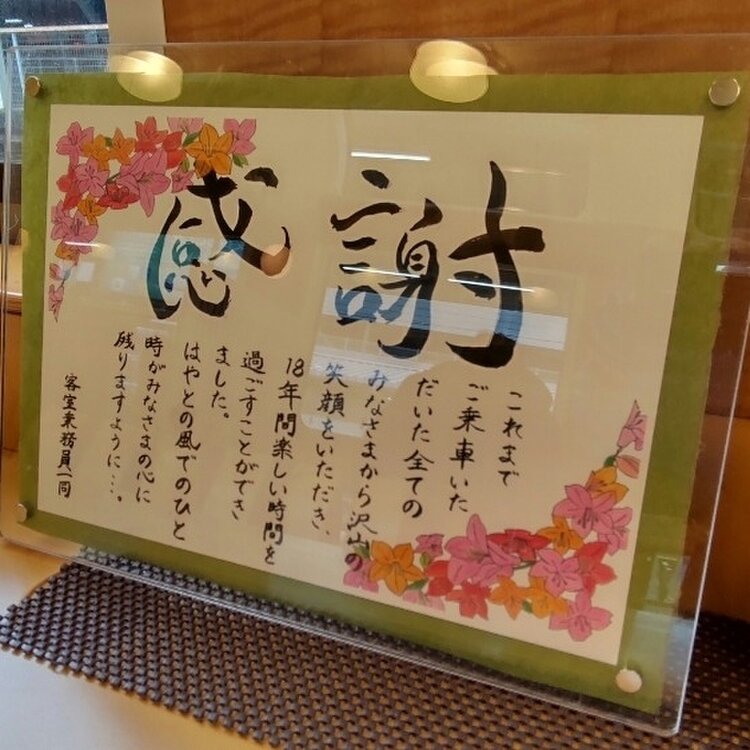 感謝
これまで
ご乗車いた
だいた全ての
みなさまから沢山の
笑顔をいただき、
18年間楽しい時間を
過ごすことができ
ました。
はやとの風でのひと
時がみなさまの心に
残りますように…。
客室乗務員一同